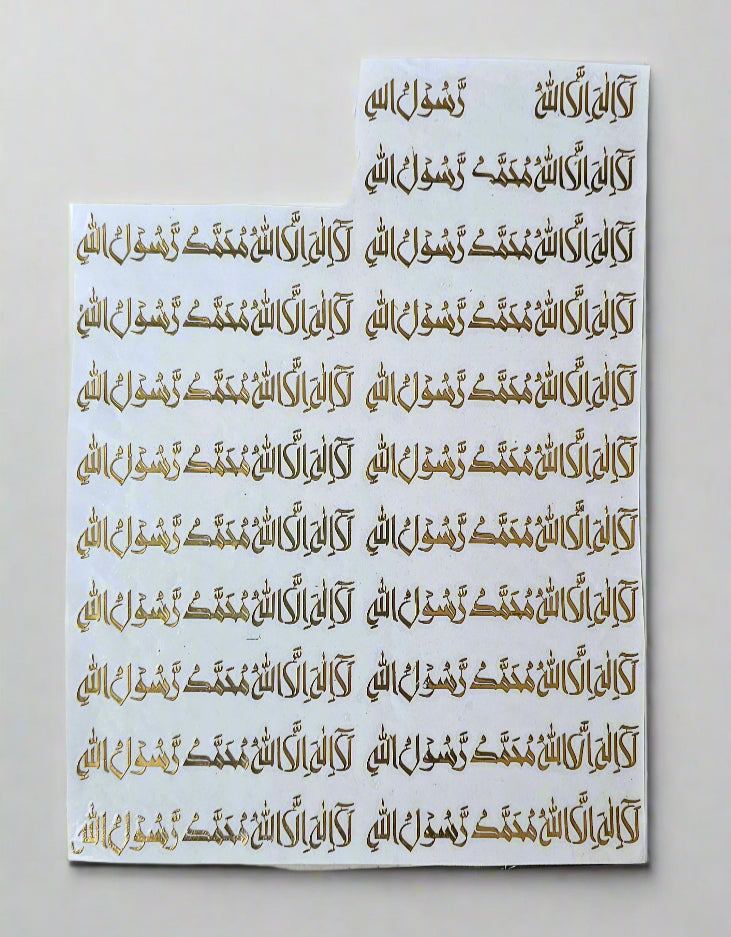 لَآ اِلٰهَ اِلَّا اللّٰهُ رَّسُوْلُ اللّٰهِ
لَآ اِلٰهَ اِلَّا اللّٰهُ مُحَمَّدٌ رَّسُوْلُ اللّٰهِ
لَآ اِلٰهَ اِلَّا اللّٰهُ مُحَمَّدٌ رَّسُوْلُ اللّٰهِ لَآ اِلٰهَ اِلَّا اللّٰهُ مُحَمَّدٌ رَّسُوْلُ اللّٰهِ
لَآ اِلٰهَ اِلَّا اللّٰهُ مُحَمَّدٌ رَّسُوْلُ اللّٰهِ لَآ اِلٰهَ اِلَّا اللّٰهُ مُحَمَّدٌ رَّسُوْلُ اللّٰهِ
لَآ اِلٰهَ اِلَّا اللّٰهُ مُحَمَّدٌ رَّسُوْلُ اللّٰهِ لَآ اِلٰهَ اِلَّا اللّٰهُ مُحَمَّدٌ رَّسُوْلُ اللّٰهِ
لَآ اِلٰهَ اِلَّا اللّٰهُ مُحَمَّدٌ رَّسُوْلُ اللّٰهِ لَآ اِلٰهَ اِلَّا اللّٰهُ مُحَمَّدٌ رَّسُوْلُ اللّٰهِ
لَآ اِلٰهَ اِلَّا اللّٰهُ مُحَمَّدٌ رَّسُوْلُ اللّٰهِ لَآ اِلٰهَ اِلَّا اللّٰهُ مُحَمَّدٌ رَّسُوْلُ اللّٰهِ
لَآ اِلٰهَ اِلَّا اللّٰهُ مُحَمَّدٌ رَّسُوْلُ اللّٰهِ لَآ اِلٰهَ اِلَّا اللّٰهُ مُحَمَّدٌ رَّسُوْلُ اللّٰهِ
لَآ اِلٰهَ اِلَّا اللّٰهُ مُحَمَّدٌ رَّسُوْلُ اللّٰهِ لَآ اِلٰهَ اِلَّا اللّٰهُ مُحَمَّدٌ رَّسُوْلُ اللّٰهِ
لَآ اِلٰهَ اِلَّا اللّٰهُ مُحَمَّدٌ رَّسُوْلُ اللّٰهِ لَآ اِلٰهَ اِلَّا اللّٰهُ مُحَمَّدٌ رَّسُوْلُ اللّٰهِ
لَآ اِلٰهَ اِلَّا اللّٰهُ مُحَمَّدٌ رَّسُوْلُ اللّٰهِ لَآ اِلٰهَ اِلَّا اللّٰهُ مُحَمَّدٌ رَّسُوْلُ اللّٰهِ